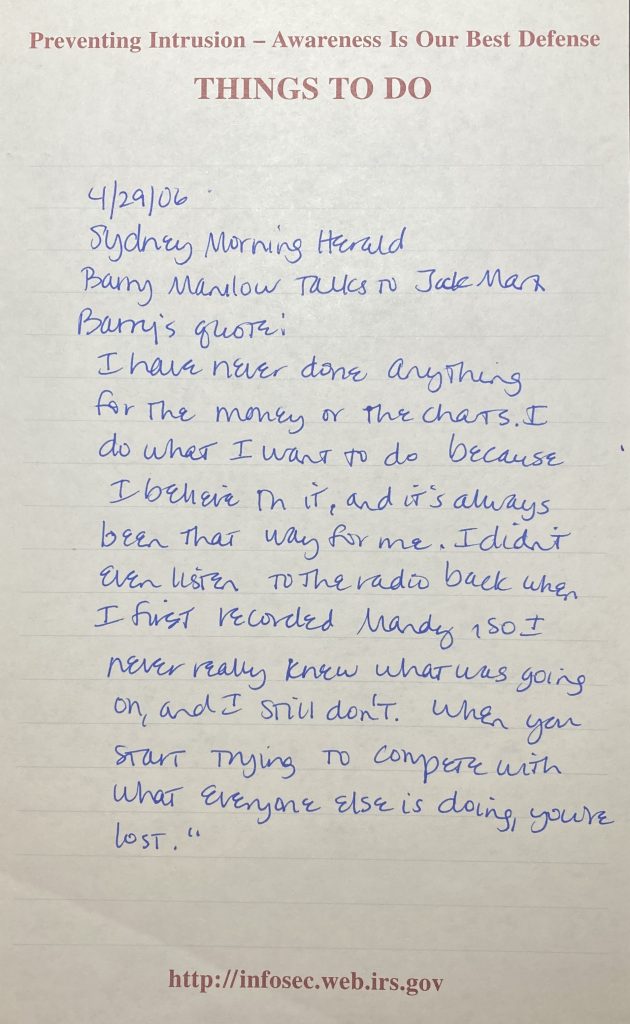 Preventing Intrusion – Awareness Is Our Best Defense
THINGS TO DO
4/29/06
Sydney Morning Herald
Barry Manilow Talks to Jack Marx
Barry's quote:
I have never done anything
for the money or the charts. I
do what I want to do because
I believe in it, and it's always
been that way for me. I didn't
even listen to the radio back when
I first recorded Mandy, so I
never really knew what was going
on, and I still don't. When you
start trying to compete with
what everyone else is doing, you're
lost."
http://infosec.web.irs.gov